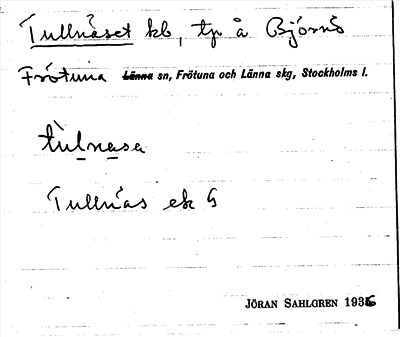 Tullnäset kb, tp å Björnö
Frötuna Länna sn, Frötuna och Länna skg, Stockholms l.
tùlnasa
Tullnäs ek G
JÖRAN SAHLGREN 1936